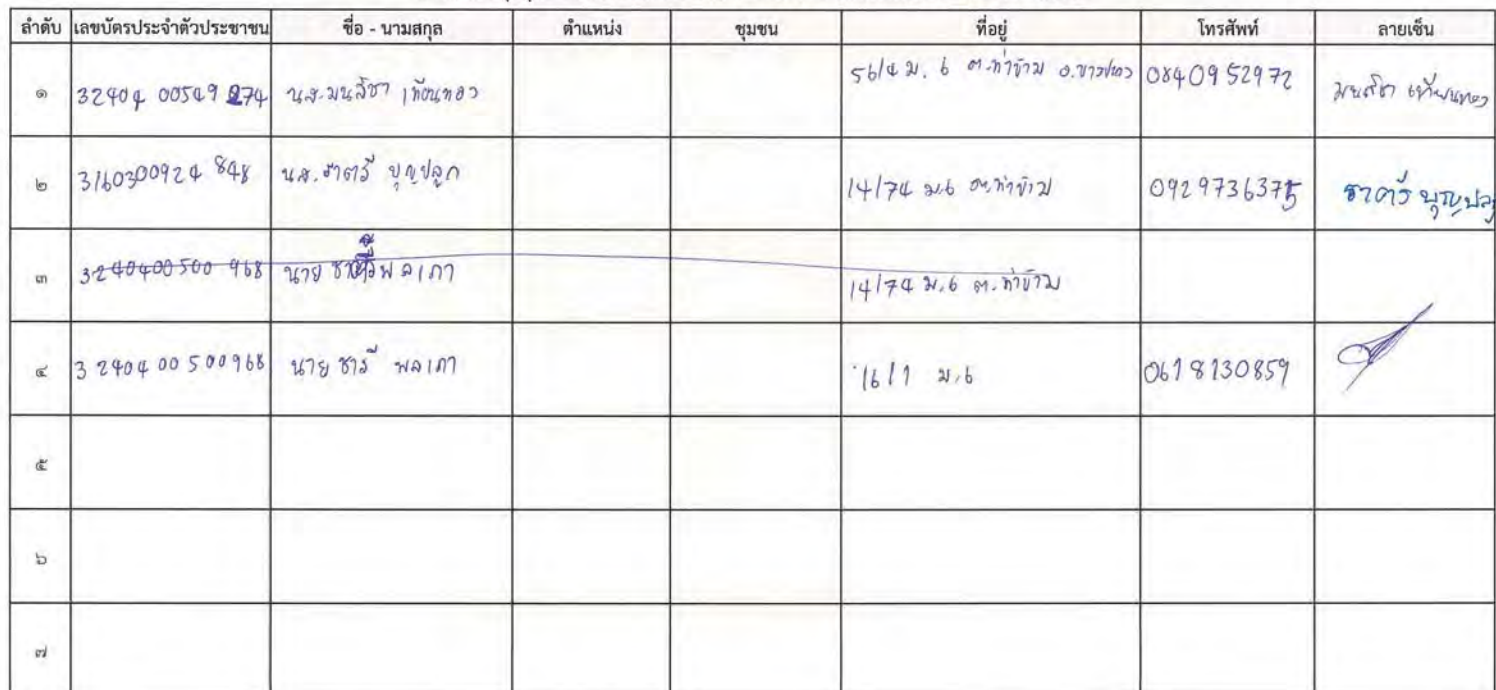 ลำดับ เลขบัตรประจำตัวประชาชน ชื่อ - นามสกุล ตำแหน่ง ชุมชน ที่อยู่ โทรศัพท์ ลายเซ็น
๑ 32404 00549 274 น.ส.มนสิชา เทียนทอง 56/4 ม. 6 ต.ท่าข้าม 0840952972 มนสิชา เทียนทอง
๒ 3160300924 848 น.ส. ราตรี บุญปลูก 14/74 ม.6 ต.ท่าข้าม 0929736375 ราตรี บุญปลูก
๓ 3240400500 968 นาย พลเภา 14/74 ม.6 ต.ท่าข้าม
๔ 3 2404 00 500968 นาย ชารี พลเภา 16/1 ม.6 0618130859
๕
๖
๗